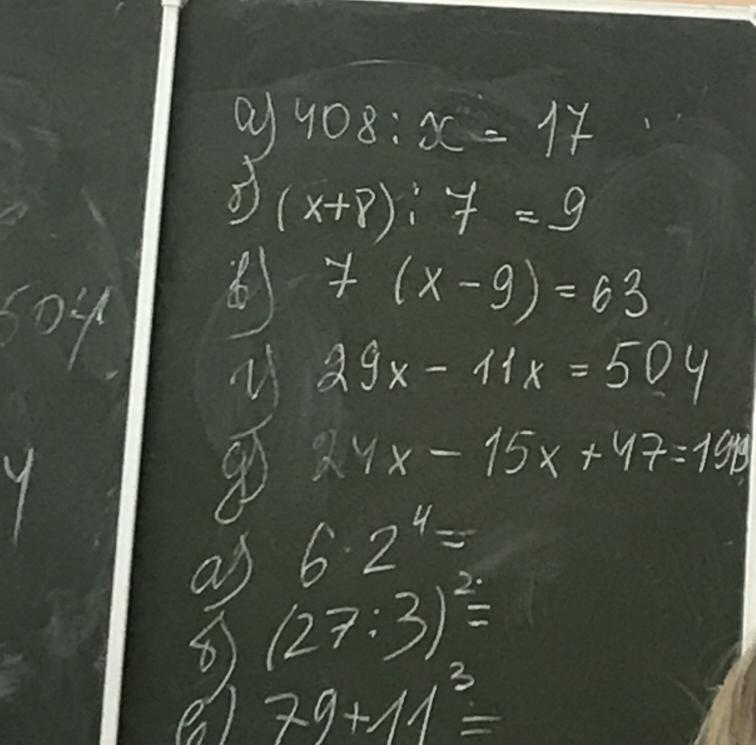 504
а) 408 : x = 17
б) (x+8) : 7 = 9
в) 7 (x - 9) = 63
г) 29x - 11x = 504
д) 24x - 15x + 47 =
а) 6 · 2⁴ =
б) (27 : 3)² =
в) 79 + 11³ =